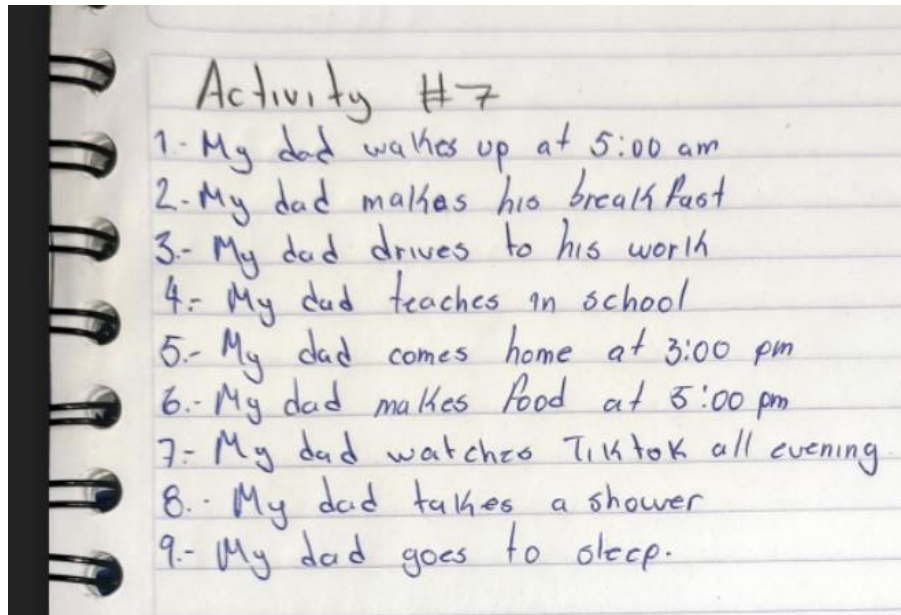 Activity #7
1.- My dad wakes up at 5:00 am
2.- My dad makes his breakfast
3.- My dad drives to his work
4.- My dad teaches in school
5.- My dad comes home at 3:00 pm
6.- My dad makes food at 5:00 pm
7.- My dad watches TikTok all evening.
8.- My dad takes a shower
9.- My dad goes to sleep.